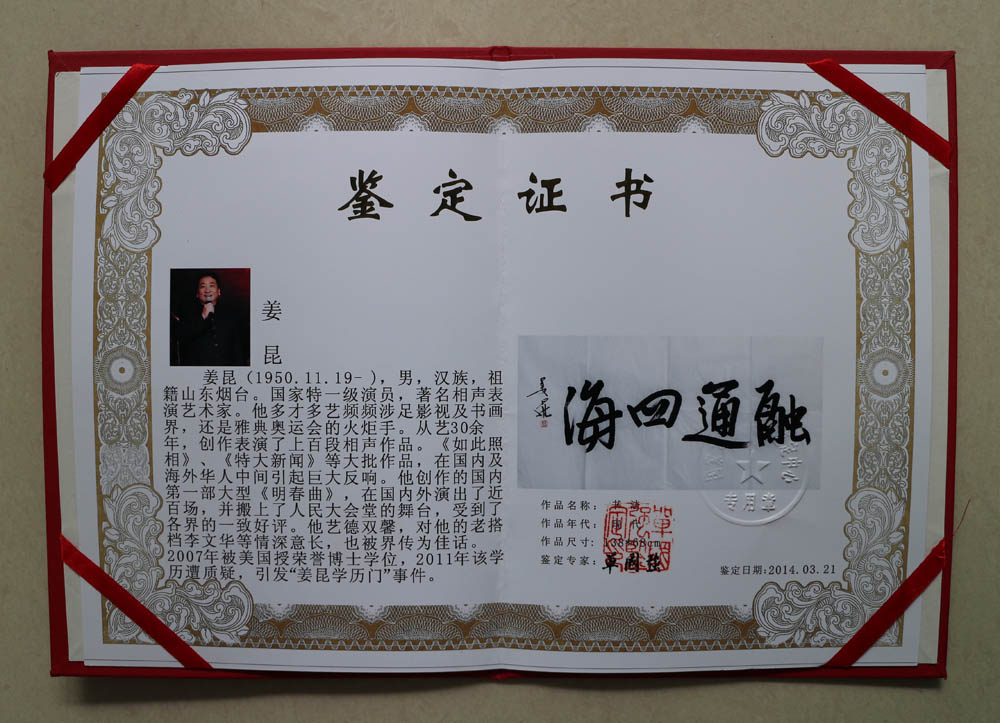 鉴定证书
姜
昆
姜昆(1950.11.19-),男,汉族,祖
籍山东烟台。国家特一级演员,著名相声表
演艺术家。他多才多艺频频涉足影视及书画
界,还是雅典奥运会的火炬手。从艺30余
年,创作表演了上百段相声作品。《如此照
相》、《特大新闻》等大批作品,在国内及
海外华人中间引起巨大反响。他创作的国内
第一部大型《明春曲》,在国内外演出了近
百场,并搬上了人民大会堂的舞台,受到了
各界的一致好评。他艺德双馨,对他的老搭
档李文华等情深意长,也被界传为佳话。
2007年被美国授荣誉博士学位,2011年该学
历遭质疑,引发“姜昆学历门”事件。
融通四海
姜昆
专用章
作品名称:书法
作品年代:
作品尺寸:138*68cm
鉴定专家:覃国强
鉴定日期:2014.03.21